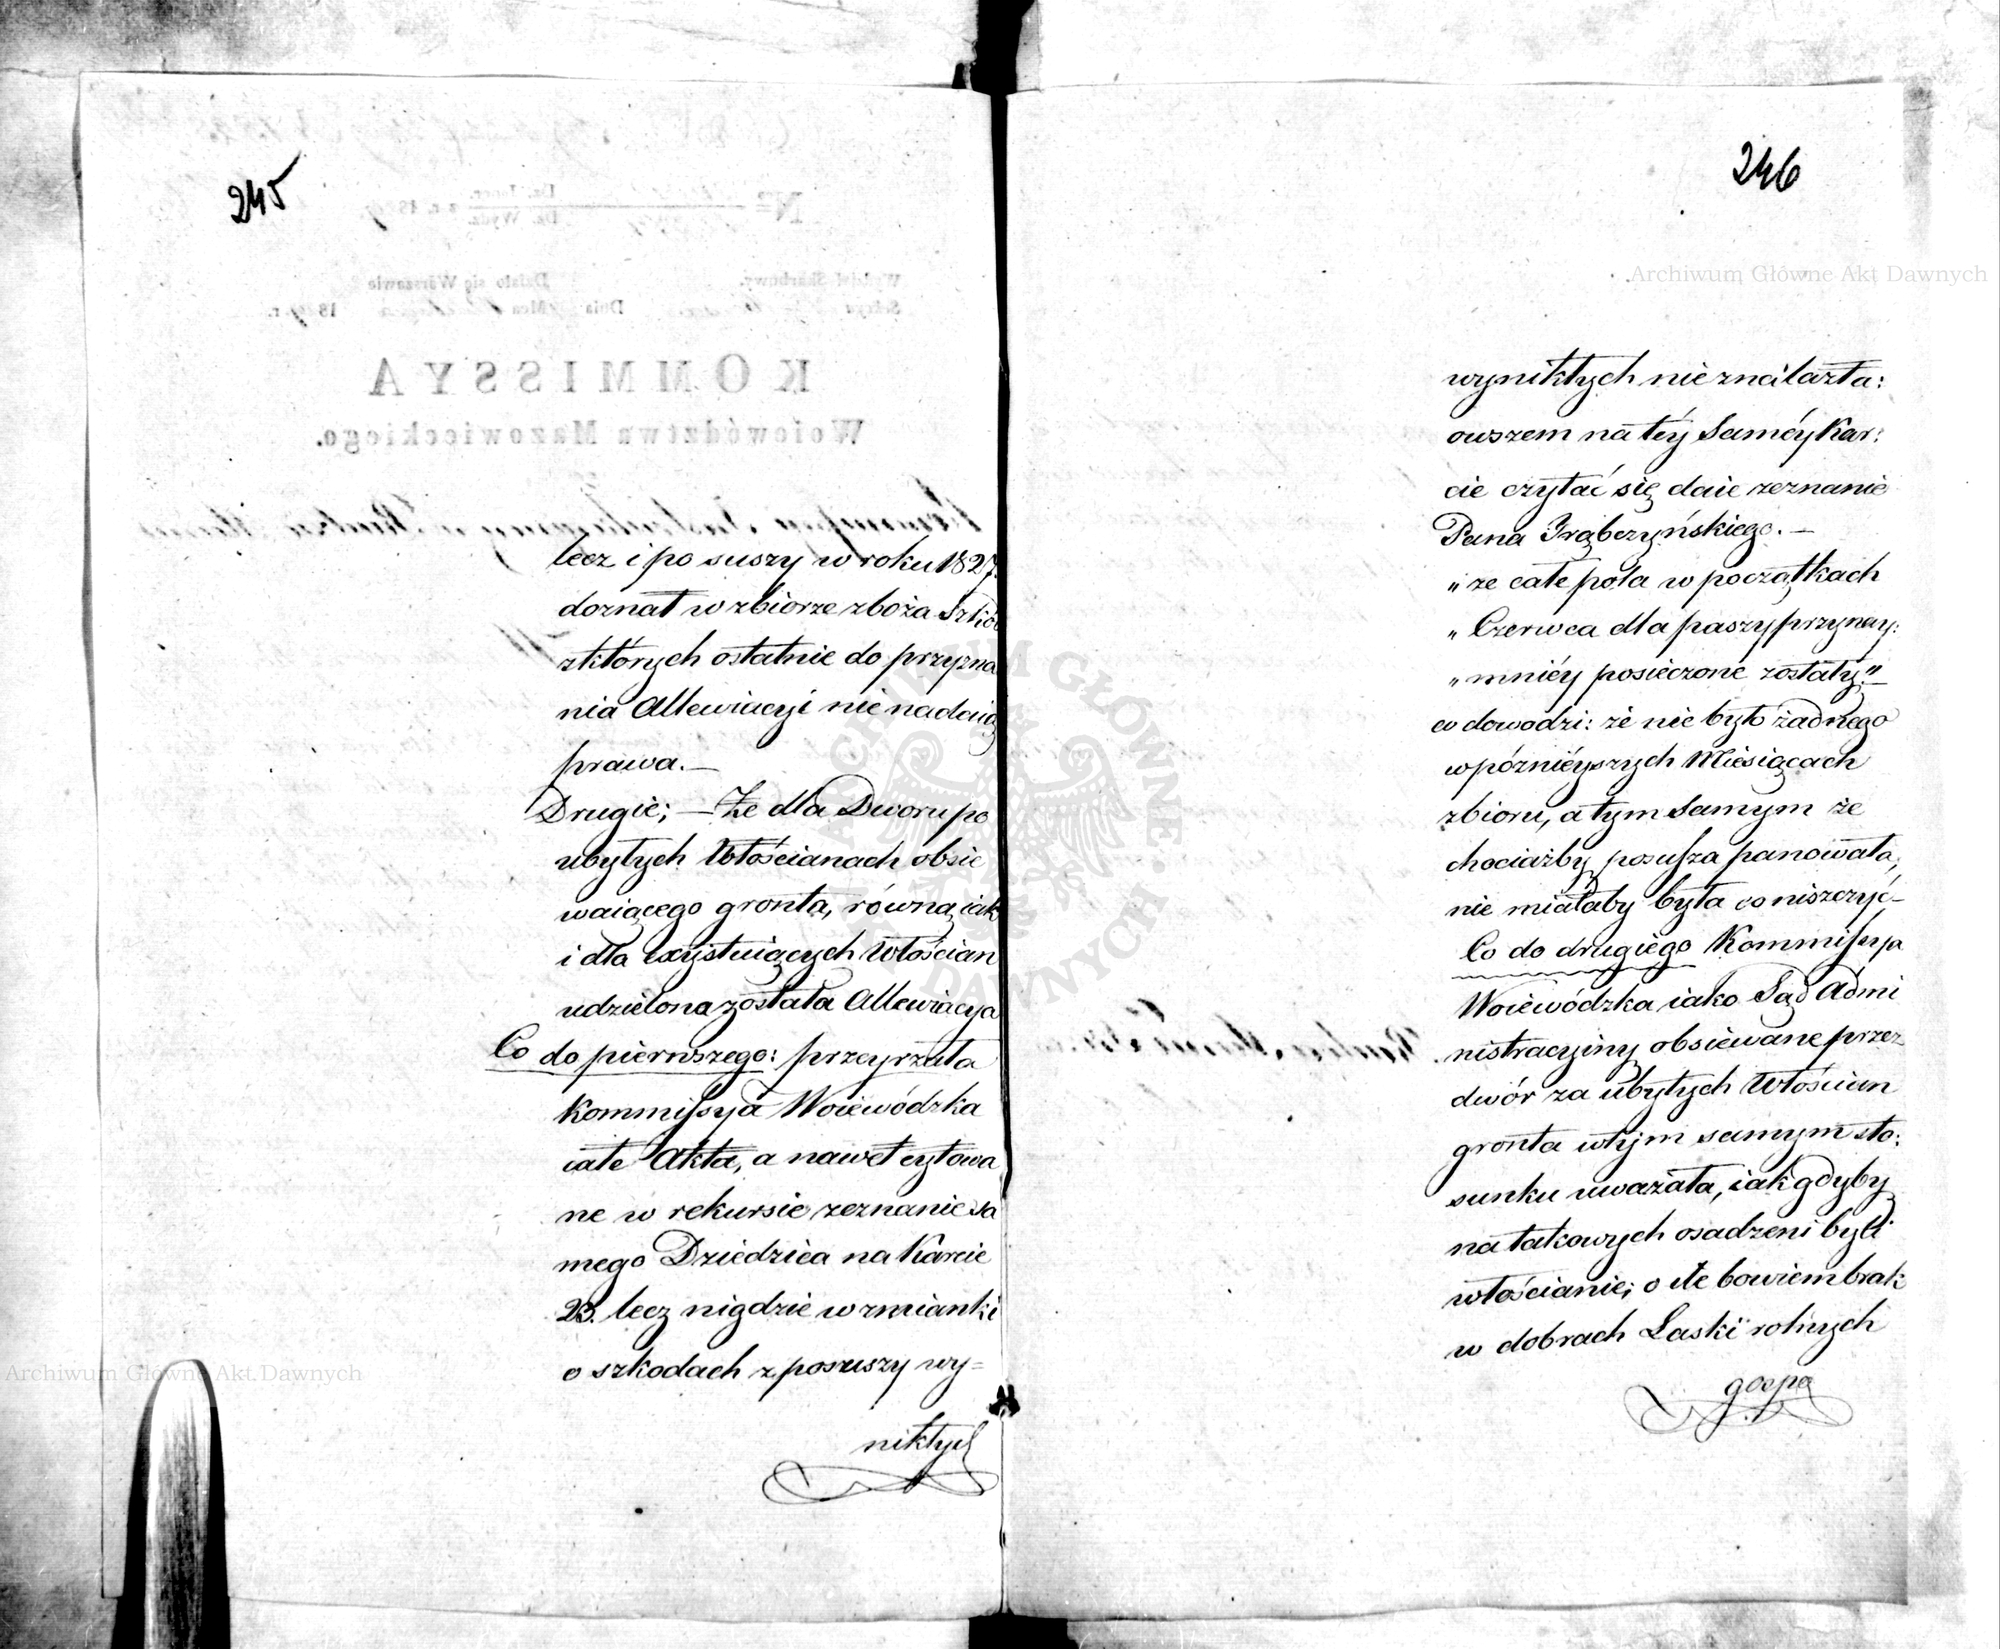 245
lecz i po suszy w roku 1827.
doznał w zbiorze zboża Szkód
z których ostatnie do przyzna
nia Allewiacyi nie nadaią
prawa.—
Drugie; — Że dla Dworu po
ubyłych Włościanach obsie
waiącego gronta, równą iak
i dla exystuiących Włościan
udzielona została Allewiacya
Co do pierwszego: przeyrzała
Kommissya Woiewódzka
całe Akta, a nawet cytowa
ne w rekursie zeznanie sa
mego Dziedzica na Karcie
23. lecz nigdzie wzmianki
o szkodach z posuszy wy=
nikłych
246
wynikłych nie znalazła:
owszem na téy Saméy Kar:
cie czytać się daie zeznanie
Pana Trąbczyńskiego.—
„że całe pola w początkach
„Czerwca dla paszy przynay:
„mniéy posieczone zostały"—
co dowodzi: że nie było żadnego
w późniéyszych Miesiącach
zbioru, a tym Samym że
chociażby posusza panowała,
nie miałaby była co niszczyć—
Co do drugiego Kommissya
Woiewódzka iako Sąd Admi
nistracyiny obsiewane przez
dwór za ubyłych Włościan
gronta w tym samym sto:
sunku uważała, iak gdyby
na takowych osadzeni byli
włościanie; o ile bowiem brak
w dobrach Laski rolnych
gospo
KOMMISSYA
Woiewództwa Mazowieckiego.
Archiwum Główne Akt Dawnych
Archiwum Główne Akt Dawnych
ARCHIWUM GŁÓWNE AKT DAWNYCH